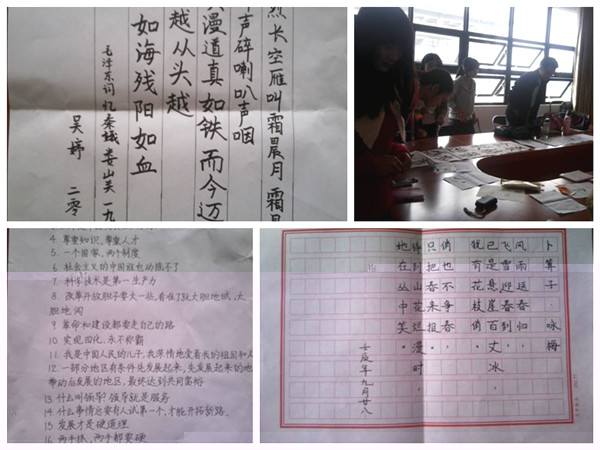 烈长空雁叫霜晨月霜
声碎喇叭声咽
漫道真如铁而今迈
越从头越
如海残阳如血
毛泽东词忆秦娥娄山关一九
吴婷 二零
4、尊重知识、尊重人才
5、一个国家、两个制度
6 社会主义的中国谁也动摇不了
7、科学技术是第一生产力
8、改革开放胆子要大一些,看准了就大胆地试,大
胆地闯
9 革命和建设都要走自己的路
10、实现四化,永不称霸
11、我是中国人民的儿子,我深情地爱着我的祖国和人
12、一部分地区有条件先发展起来,先发展起来的地
带动后发展的地区,最终达到共同富裕
13 什么叫领导?领导就是服务
14、什么事情总要有人试第一个,才能开拓新路。
15 发展才是硬道理
16 两手抓,两手都要硬
卜算子·咏梅
风雨送春归,
飞雪迎春到。
已是悬崖百丈冰,
犹有花枝俏。
俏也不争春,
只把春来报。
待到山花烂漫时,
她在丛中笑。
壬辰年九月廿八